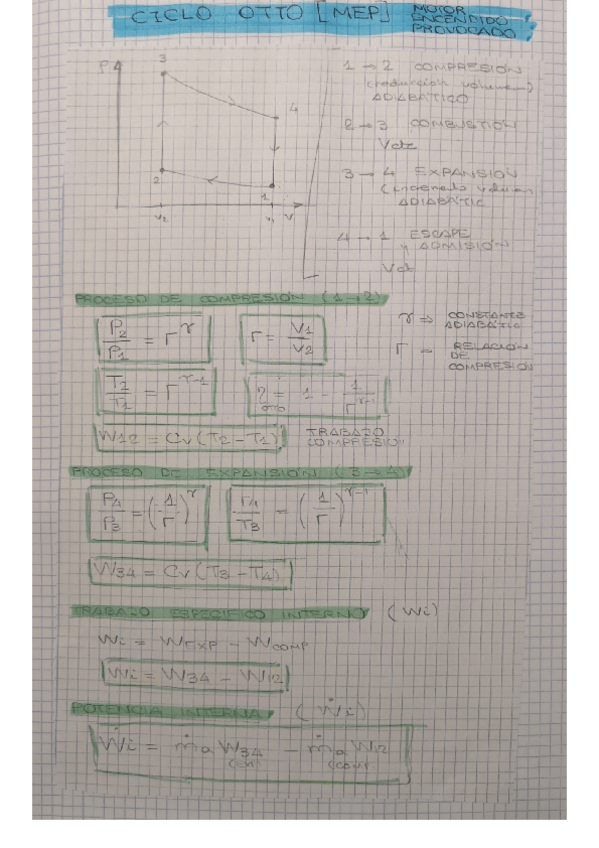 CICLO OTTO [MEP] MOTOR ENCENDIDO PROVOCADO
P
3
4
2
1
V2
V1
V
1 → 2 COMPRESIÓN
(reducción volumen)
ADIABÁTICO
2 → 3 COMBUSTIÓN
Vcte
3 → 4 EXPANSIÓN
(incremento volumen
ADIABÁTIC
4 → 1 ESCAPE
y ADMISIÓN
Vct
PROCESO DE COMPRESIÓN (1→2)
P2/P1 = r^γ
r = V1/V2
γ => CONSTANTE ADIABÁTIC
r – RELACIÓN DE COMPRESIÓN
T2/T1 = r^γ-1
η otto = 1 - 1/r^γ-1
W12 = Cv (T2 - T1)
TRABAJO COMPRESIÓN
PROCESO DE EXPANSIÓN (3→4)
P4/P3 = (1/r)^γ
T4/T3 = (1/r)^γ-1
W34 = Cv (T3 - T4)
TRABAJO ESPECÍFICO INTERNO (Wi)
Wi = WEXP - WCOMP
Wi = W34 - W12
POTENCIA INTERNA (Ẇi)
Ẇi = ṁa W34 - ṁa W12
(comp